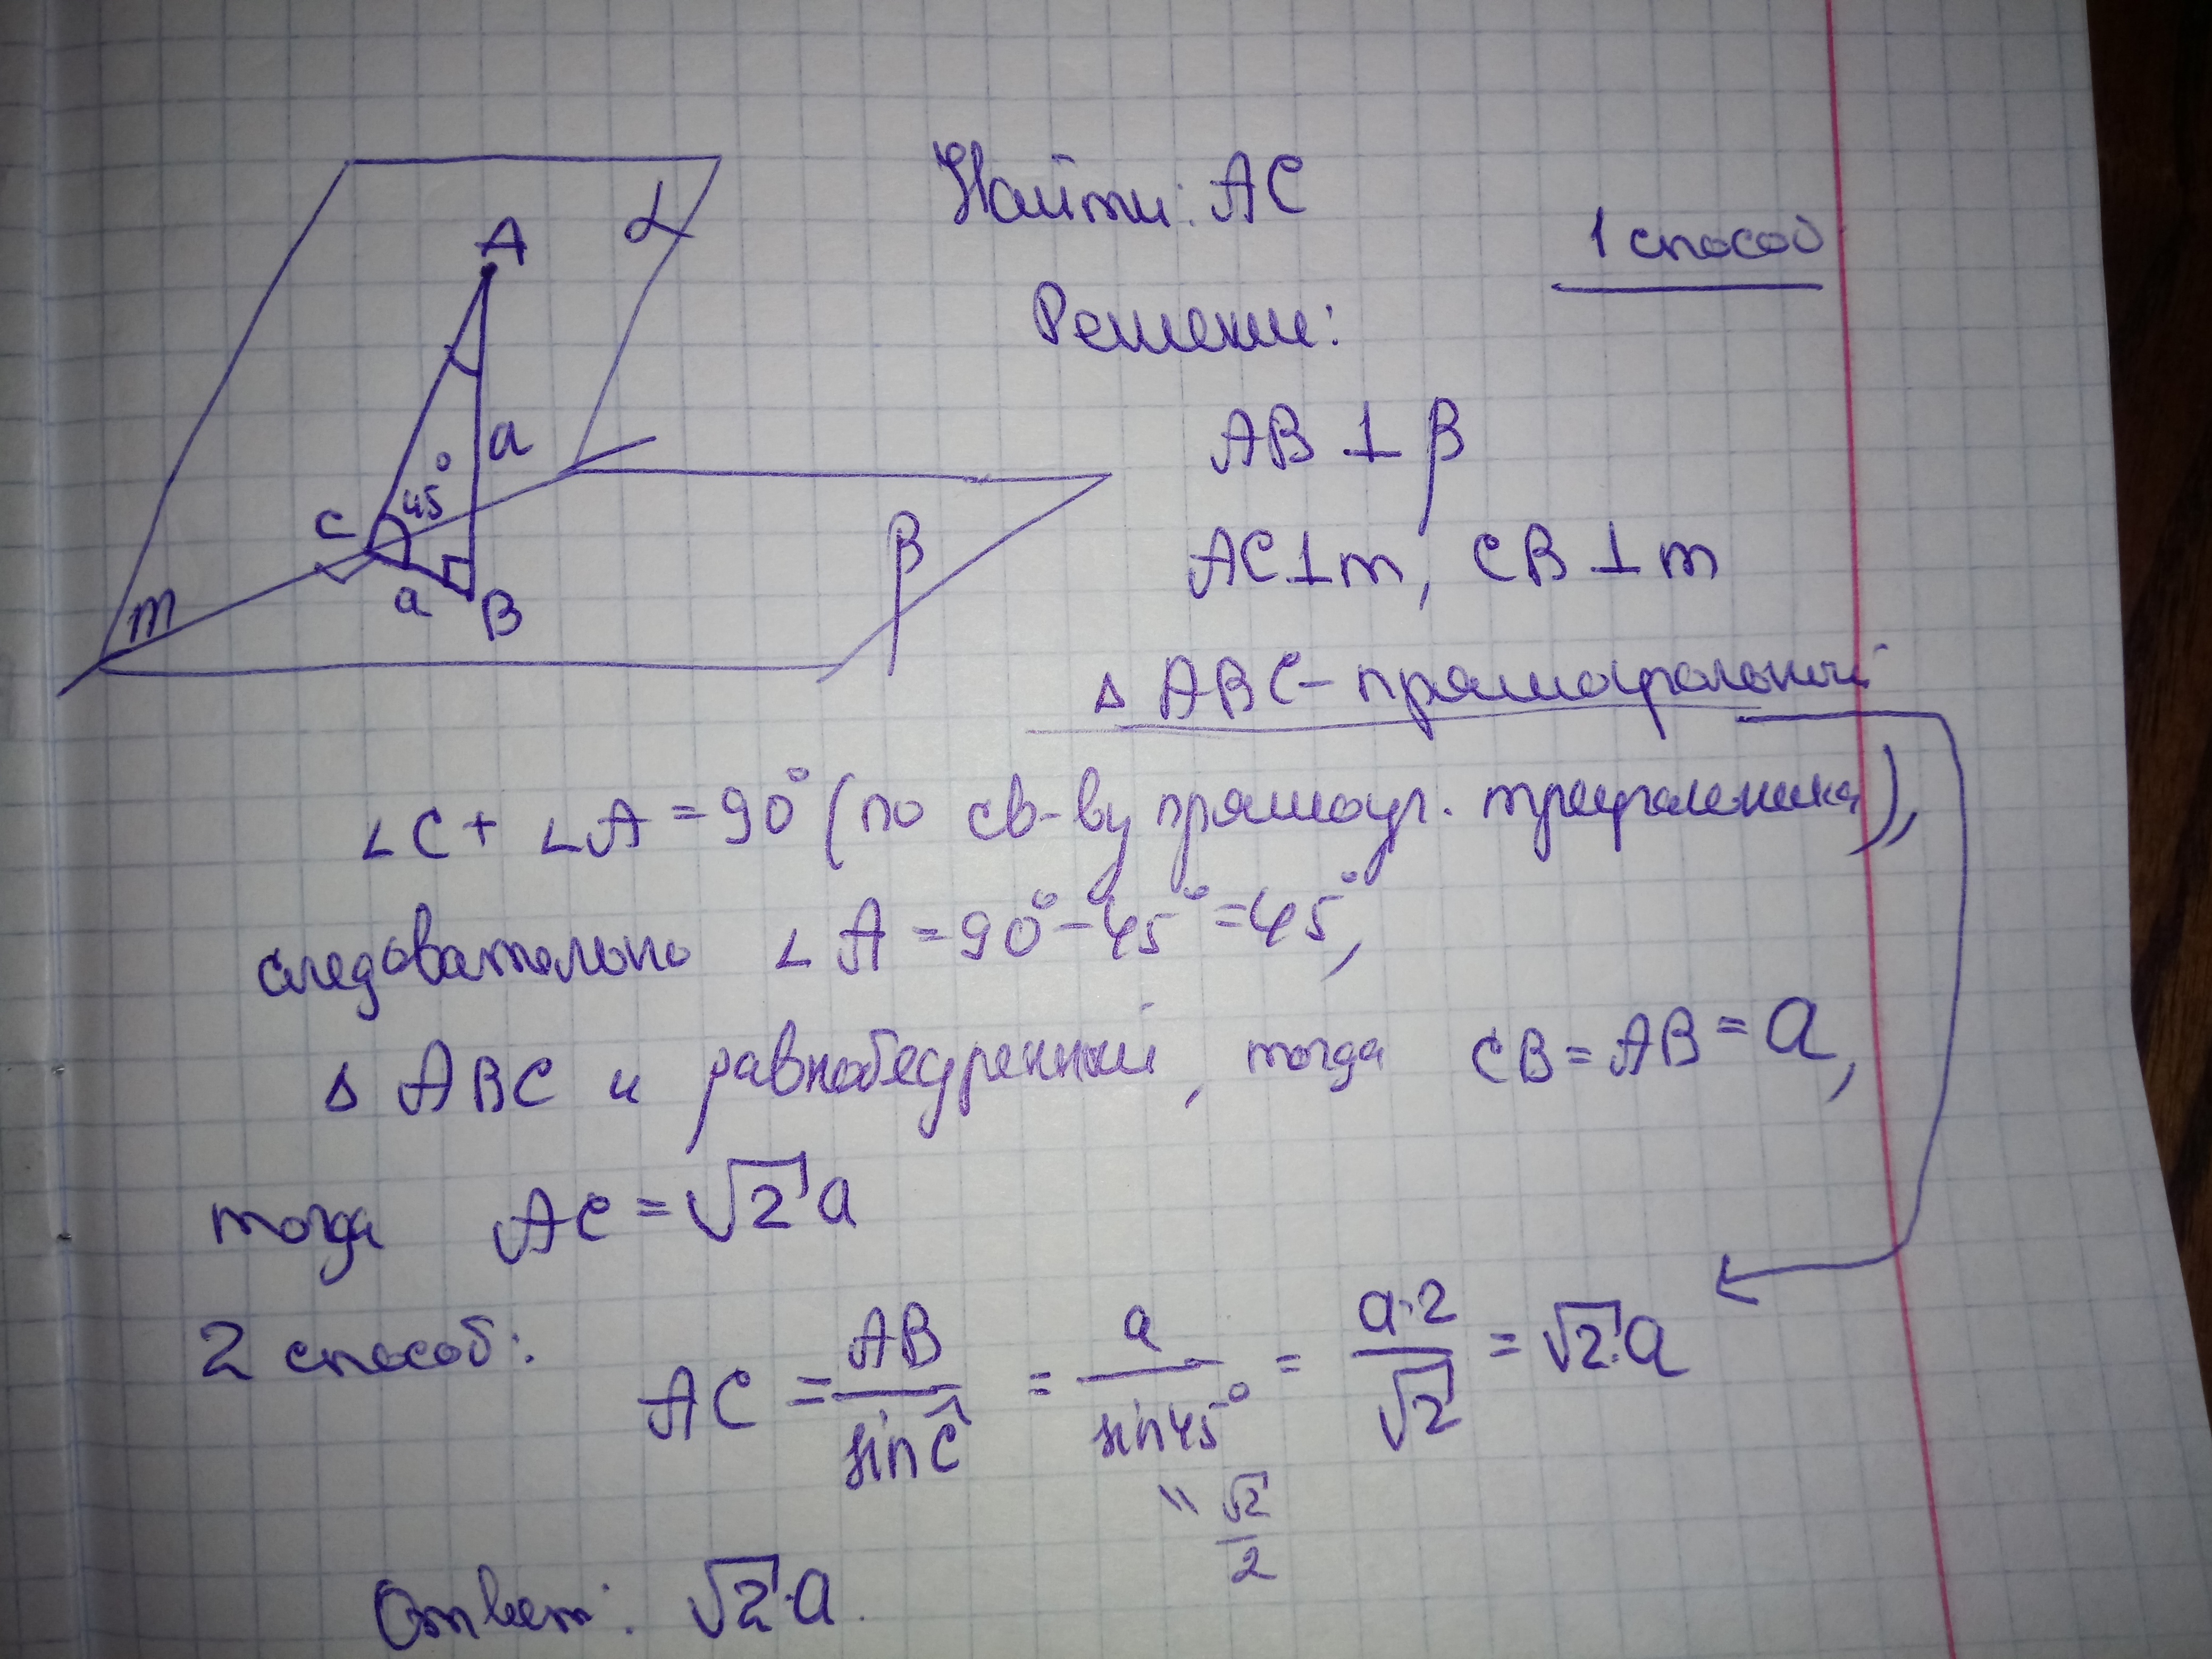 Найти: AC
1 способ
Решение:
A
α
a
45°
C
a
B
m
β
AB ⊥ β
AC ⊥ m, CB ⊥ m
Δ ABC - прямоугольный
∠C + ∠A = 90° (по св-ву прямоуг. треугольника),
следовательно ∠A = 90° - 45° = 45°,
Δ ABC и равнобедренный, тогда CB = AB = a,
тогда AC = √2 a
2 способ: AC = AB / sin Ĉ = a / sin 45° = a·2 / √2 = √2·a
" √2 / 2
Ответ: √2·a.